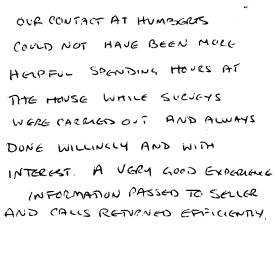 OUR CONTACT AT HUMBERTS
COULD NOT HAVE BEEN MORE
HELPFUL SPENDING HOURS AT
THE HOUSE WHILE SURVEYS
WERE CARRIED OUT AND ALWAYS
DONE WILLINGLY AND WITH
INTEREST. A VERY GOOD EXPERIENCE
INFORMATION PASSED TO SELLER
AND CALLS RETURNED EFFICIENTLY.